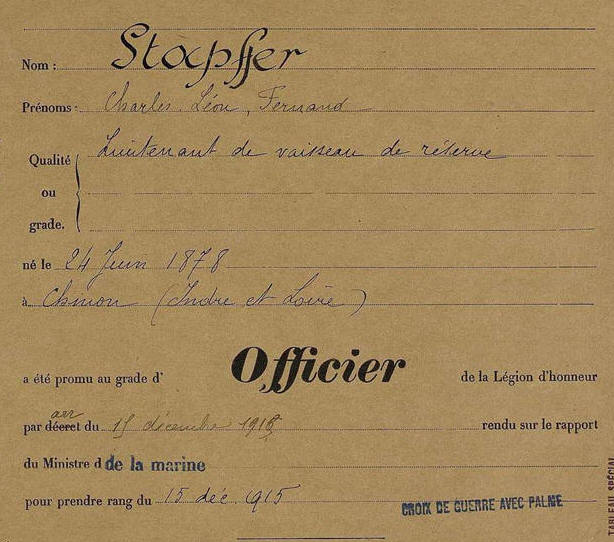 Nom : Stapffer
Prénoms : Charles, Léon, Fernand
Qualité Lieutenant de vaisseau de réserve
ou
grade.
né le 24 Juin 1878
à Chinon (Indre et Loire)
a été promu au grade d' Officier de la Légion d'honneur
arr
par décret du 15 décembre 1915 rendu sur le rapport
du Ministre d de la marine
pour prendre rang du 15 déc. 1915
CROIX DE GUERRE AVEC PALME
TABLEAU SPÉCIAL